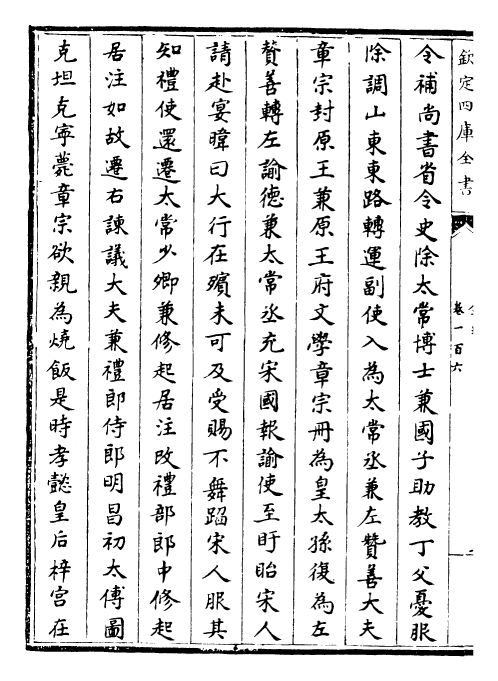 欽定四庫全書
卷一百六
令補尚書省令史除太常博士兼國子助教丁父憂服
除調山東東路轉運副使入為太常丞兼左贊善大夫
章宗封原王兼原王府文學章宗冊為皇太孫復為左
贊善轉左諭德兼太常丞充宋國報諭使至盱眙宋人
請赴宴暐曰大行在殯未可及受賜不舞蹈宋人服其
知禮使還遷太常少卿兼修起居注改禮部郎中修起
居注如故遷右諫議大夫兼禮郎侍郎明昌初太傅圖
克坦克寜薨章宗欲親為燒飯是時孝懿皇后梓宮在